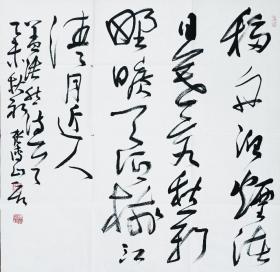 移舟泊烟渚
日暮客愁新
野旷天低树江
清月近人
孟浩然诗一首
乙未秋初